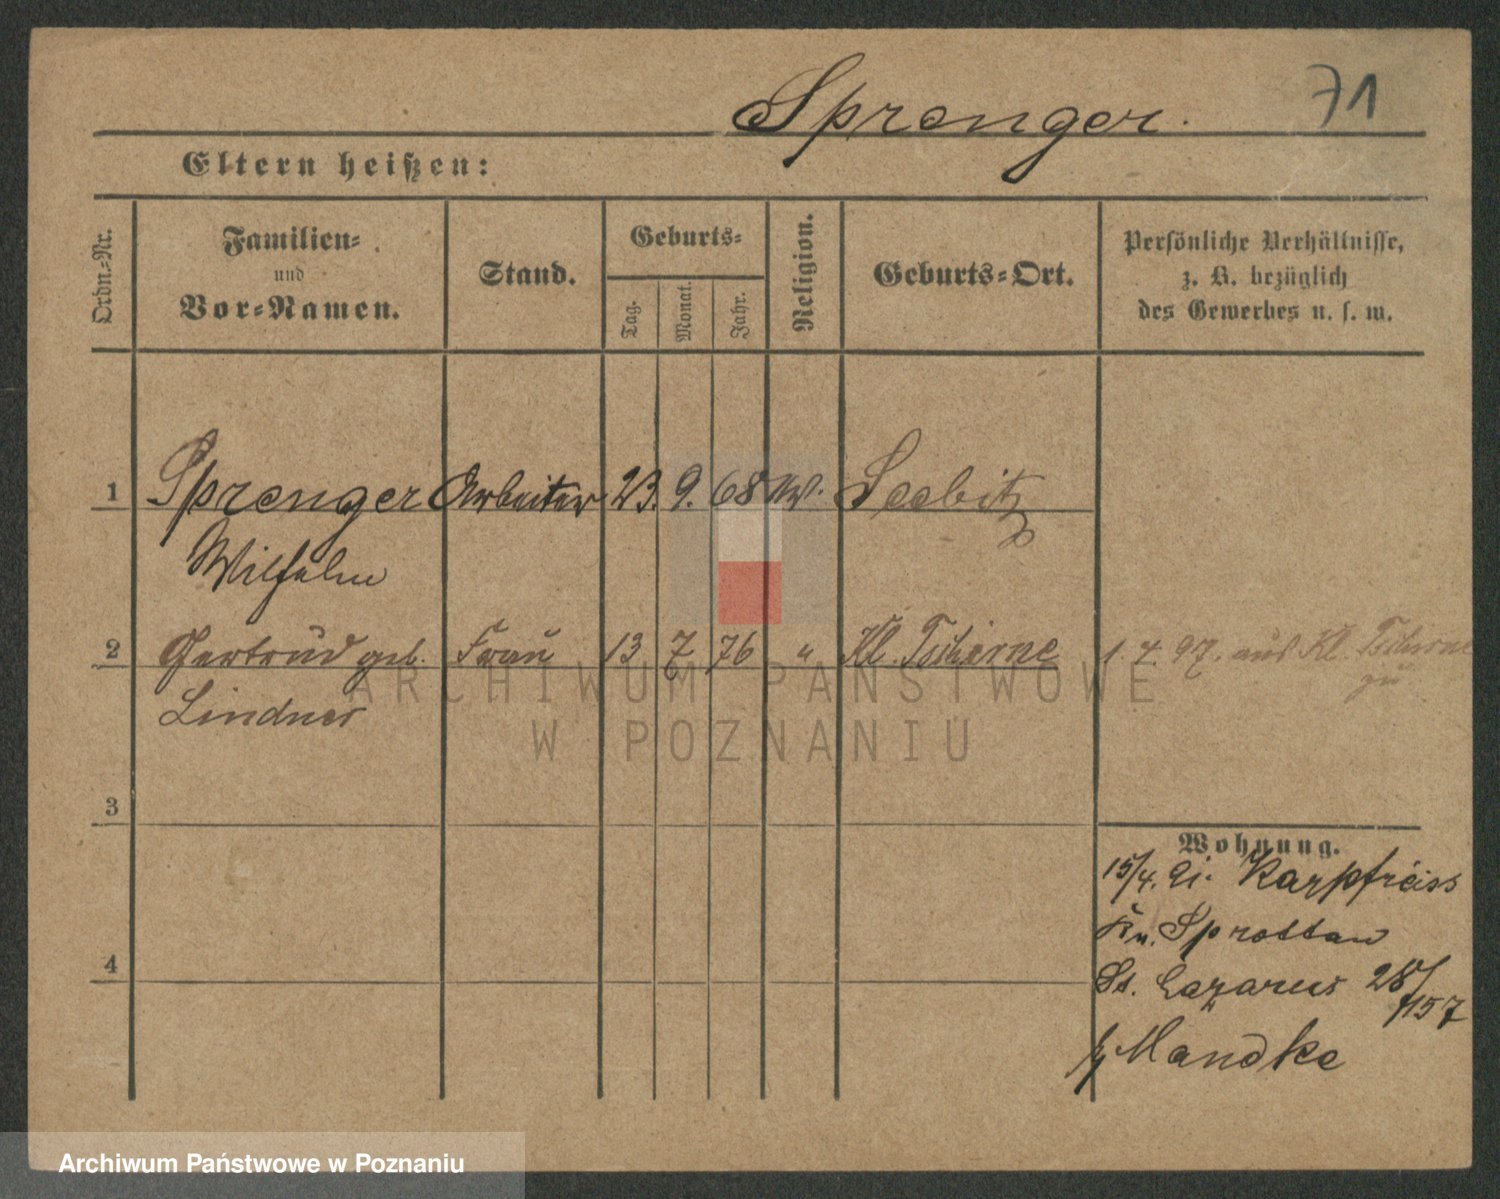 Sprenger.
71
Eltern heißen:
Ordn.-Nr.
Familien-
und
Vor-Namen.
Stand.
Geburts-
Tag.
Monat.
Jahr.
Religion.
Geburts-Ort.
Persönliche Verhältnisse,
z. B. bezüglich
des Gewerbes u. s. w.
1 Sprenger Arbeiter 23. 9. 68 Seebitz
Wilhelm
2 Gertrud geb. Frau 13 7 76 " Kl. Tschirne 1. 7. 97. aus Kl. Tschirne
Lindner zu
3
4
Wohnung.
15/4. 91. Karpfreiss
Kr. Sprottau
St. Lazarus 28/
Mandke
ARCHIWUM PAŃSTWOWE
W POZNANIU
Archiwum Państwowe w Poznaniu